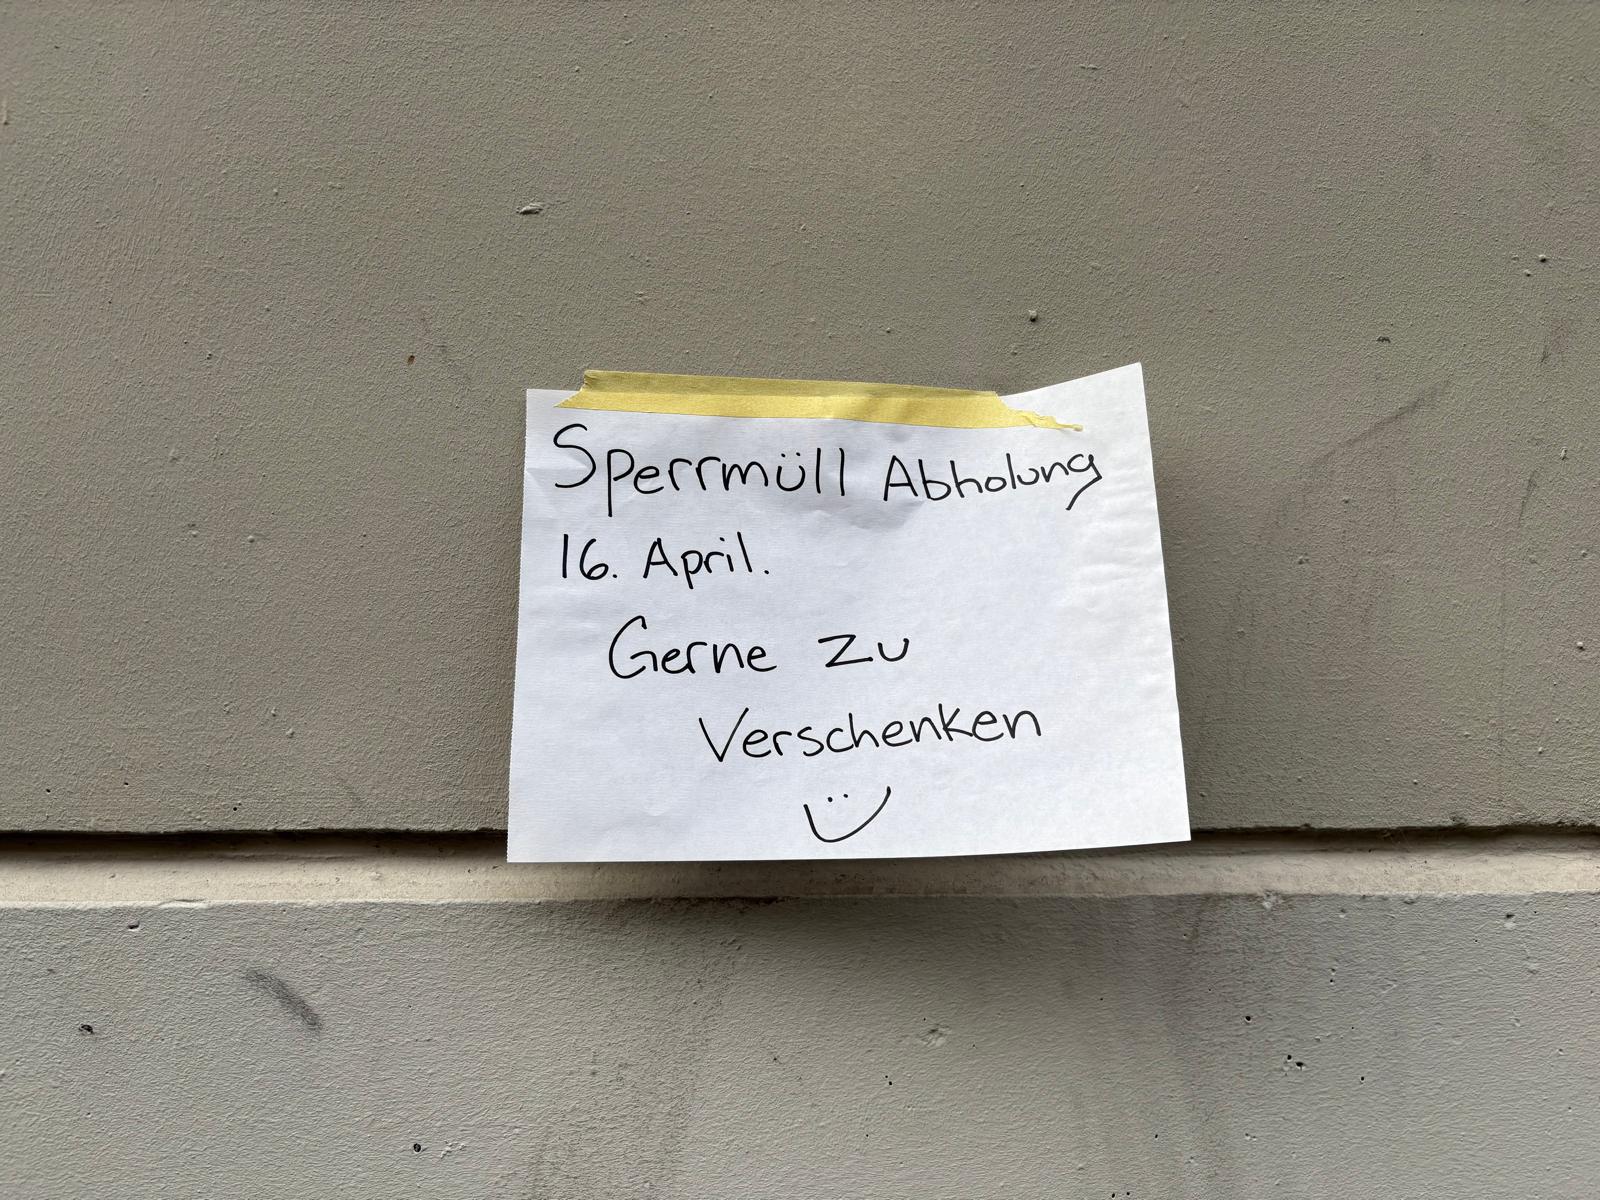 Sperrmüll Abholung
16. April.
Gerne zu
Verschenken